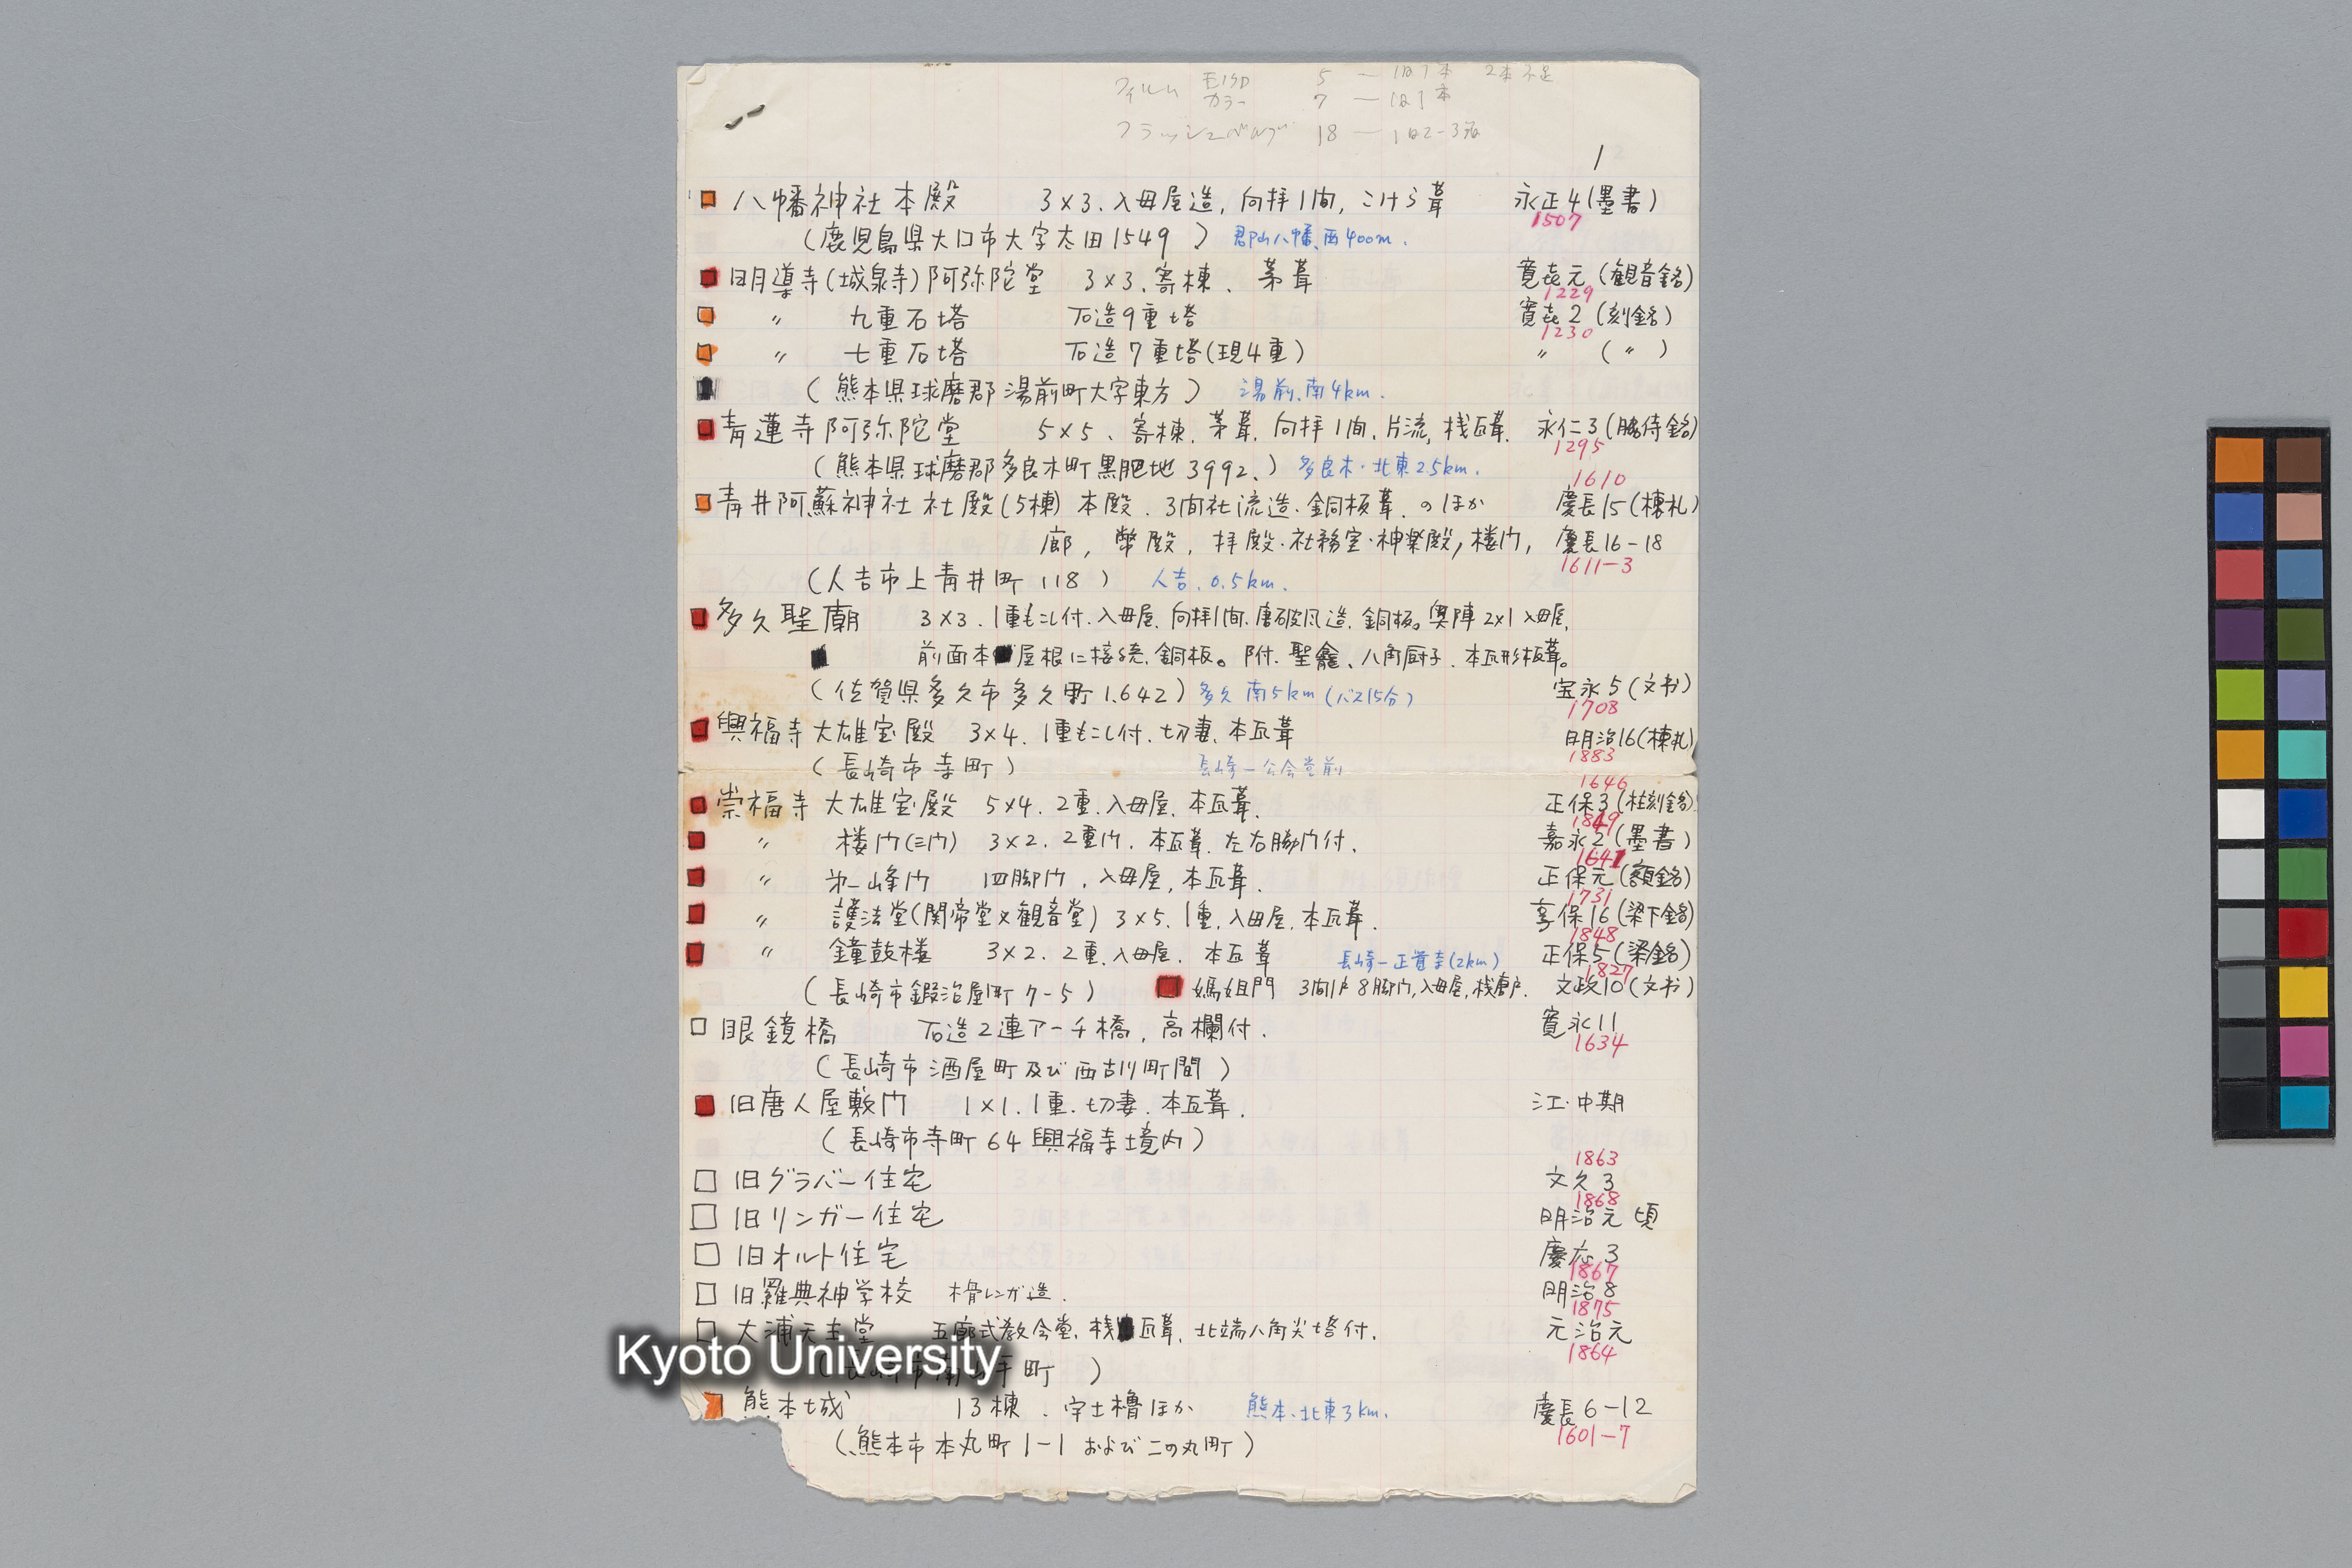 フィルム モノクロ 5 — 1日1本 2本不足
カラー 7 — 1日1本
フラッシュバルブ 18 — 1日2-3発
1
八幡神社本殿 3×3.入母屋造,向拝1間,こけら葺 永正4(墨書)
1507
(鹿児島県大口市大字太田1549) 郡山八幡、西400m.
明導寺(城泉寺)阿弥陀堂 3×3.寄棟.茅葺 寛喜元(観音銘)
1229
〃 九重石塔 石造9重塔 寛喜2(刻銘)
1230
〃 七重石塔 石造7重塔(現4重) 〃 (〃)
(熊本県球磨郡湯前町大字東方) 湯前、南4km.
青蓮寺阿弥陀堂 5×5、寄棟.茅葺.向拝1間.片流,桟瓦葺. 永仁3(脇侍銘)
1295
(熊本県球磨郡多良木町黒肥地3992.) 多良木・北東2.5km.
1610
青井阿蘇神社社殿(5棟)本殿.3間社流造.銅板葺.のほか 慶長15(棟札)
廊,幣殿,拝殿・社務室・神楽殿,楼門, 慶長16-18
1611-3
(人吉市上青井町118) 人吉.0.5km.
多久聖廟 3×3.1重もこし付.入母屋.向拝1間.唐破風造.銅板。奥陣2×1入母屋.
前面本屋根に接続.銅板。附.聖龕、八角厨子.本瓦形板葺。
(佐賀県多久市多久町1.642) 多久 南5km(バス15分) 宝永5(文书)
1708
興福寺大雄宝殿 3×4.1重もこし付.切妻.本瓦葺 明治16(棟札)
1883
(長崎市寺町) 長崎—公会堂前
1646
崇福寺大雄宝殿 5×4.2重.入母屋.本瓦葺. 正保3(柱刻銘)
1849
〃 楼門(三門) 3×2.2重門.本瓦葺.左右脇門付. 嘉永2(墨書)
1641
〃 第一峰門 四脚門.入母屋,本瓦葺. 正保元(額銘)
1731
〃 護法堂(関帝堂又観音堂) 3×5.1重.入母屋.本瓦葺. 享保16(梁下銘)
1848
〃 鐘鼓楼 3×2.2重.入母屋.本瓦葺 長崎—正覚寺(2km) 正保5(梁銘)
1827
(長崎市鍛冶屋町7-5) 媽姐門 3間1戸8脚門,入母屋,桟唐戸. 文政10(文书)
眼鏡橋 石造2連アーチ橋,高欄付. 寛永11
1634
(長崎市酒屋町及び西古川町間)
旧唐人屋敷門 1×1.1重.切妻.本瓦葺. 江・中期
(長崎市寺町64興福寺境内)
1863
旧グラバー住宅 文久3
1868
旧リンガー住宅 明治元頃
旧オルト住宅 慶応3
1867
旧羅典神学校 木骨レンガ造. 明治8
1875
大浦天主堂 五廊式教会堂.桟瓦葺.北端八角尖塔付. 元治元
1864
(長崎市南山手町)
熊本城 13棟.宇土櫓ほか 熊本・北東3km. 慶長6-12
1601-7
(熊本市本丸町1-1および二の丸町)
Kyoto University